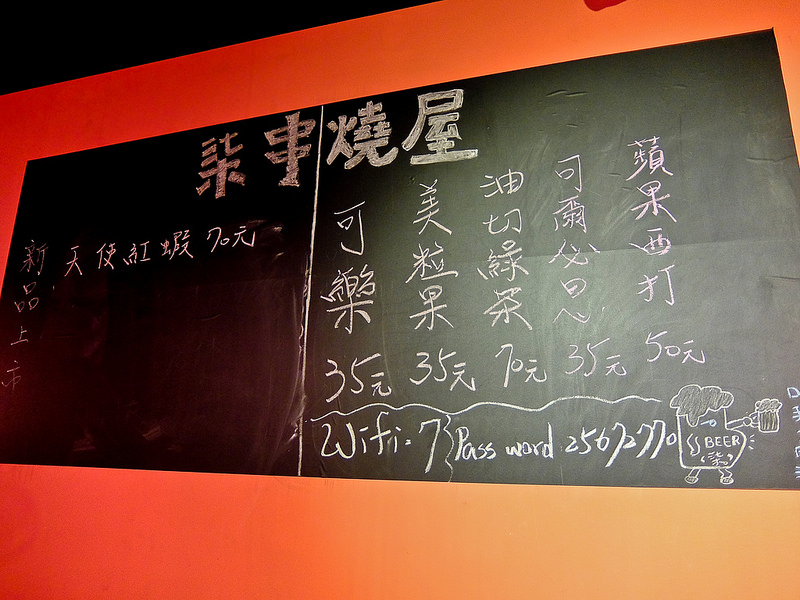 柒串燒屋
新品上市
天使紅蝦 70元
可樂 35元
美粒果 35元
油切綠茶 70元
可爾必思 35元
蘋果西打 50元
Wifi: 7
Pass word 25672770
BEER
柒